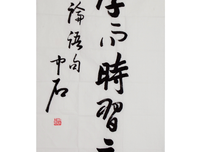 学而時習之
論語句
中石